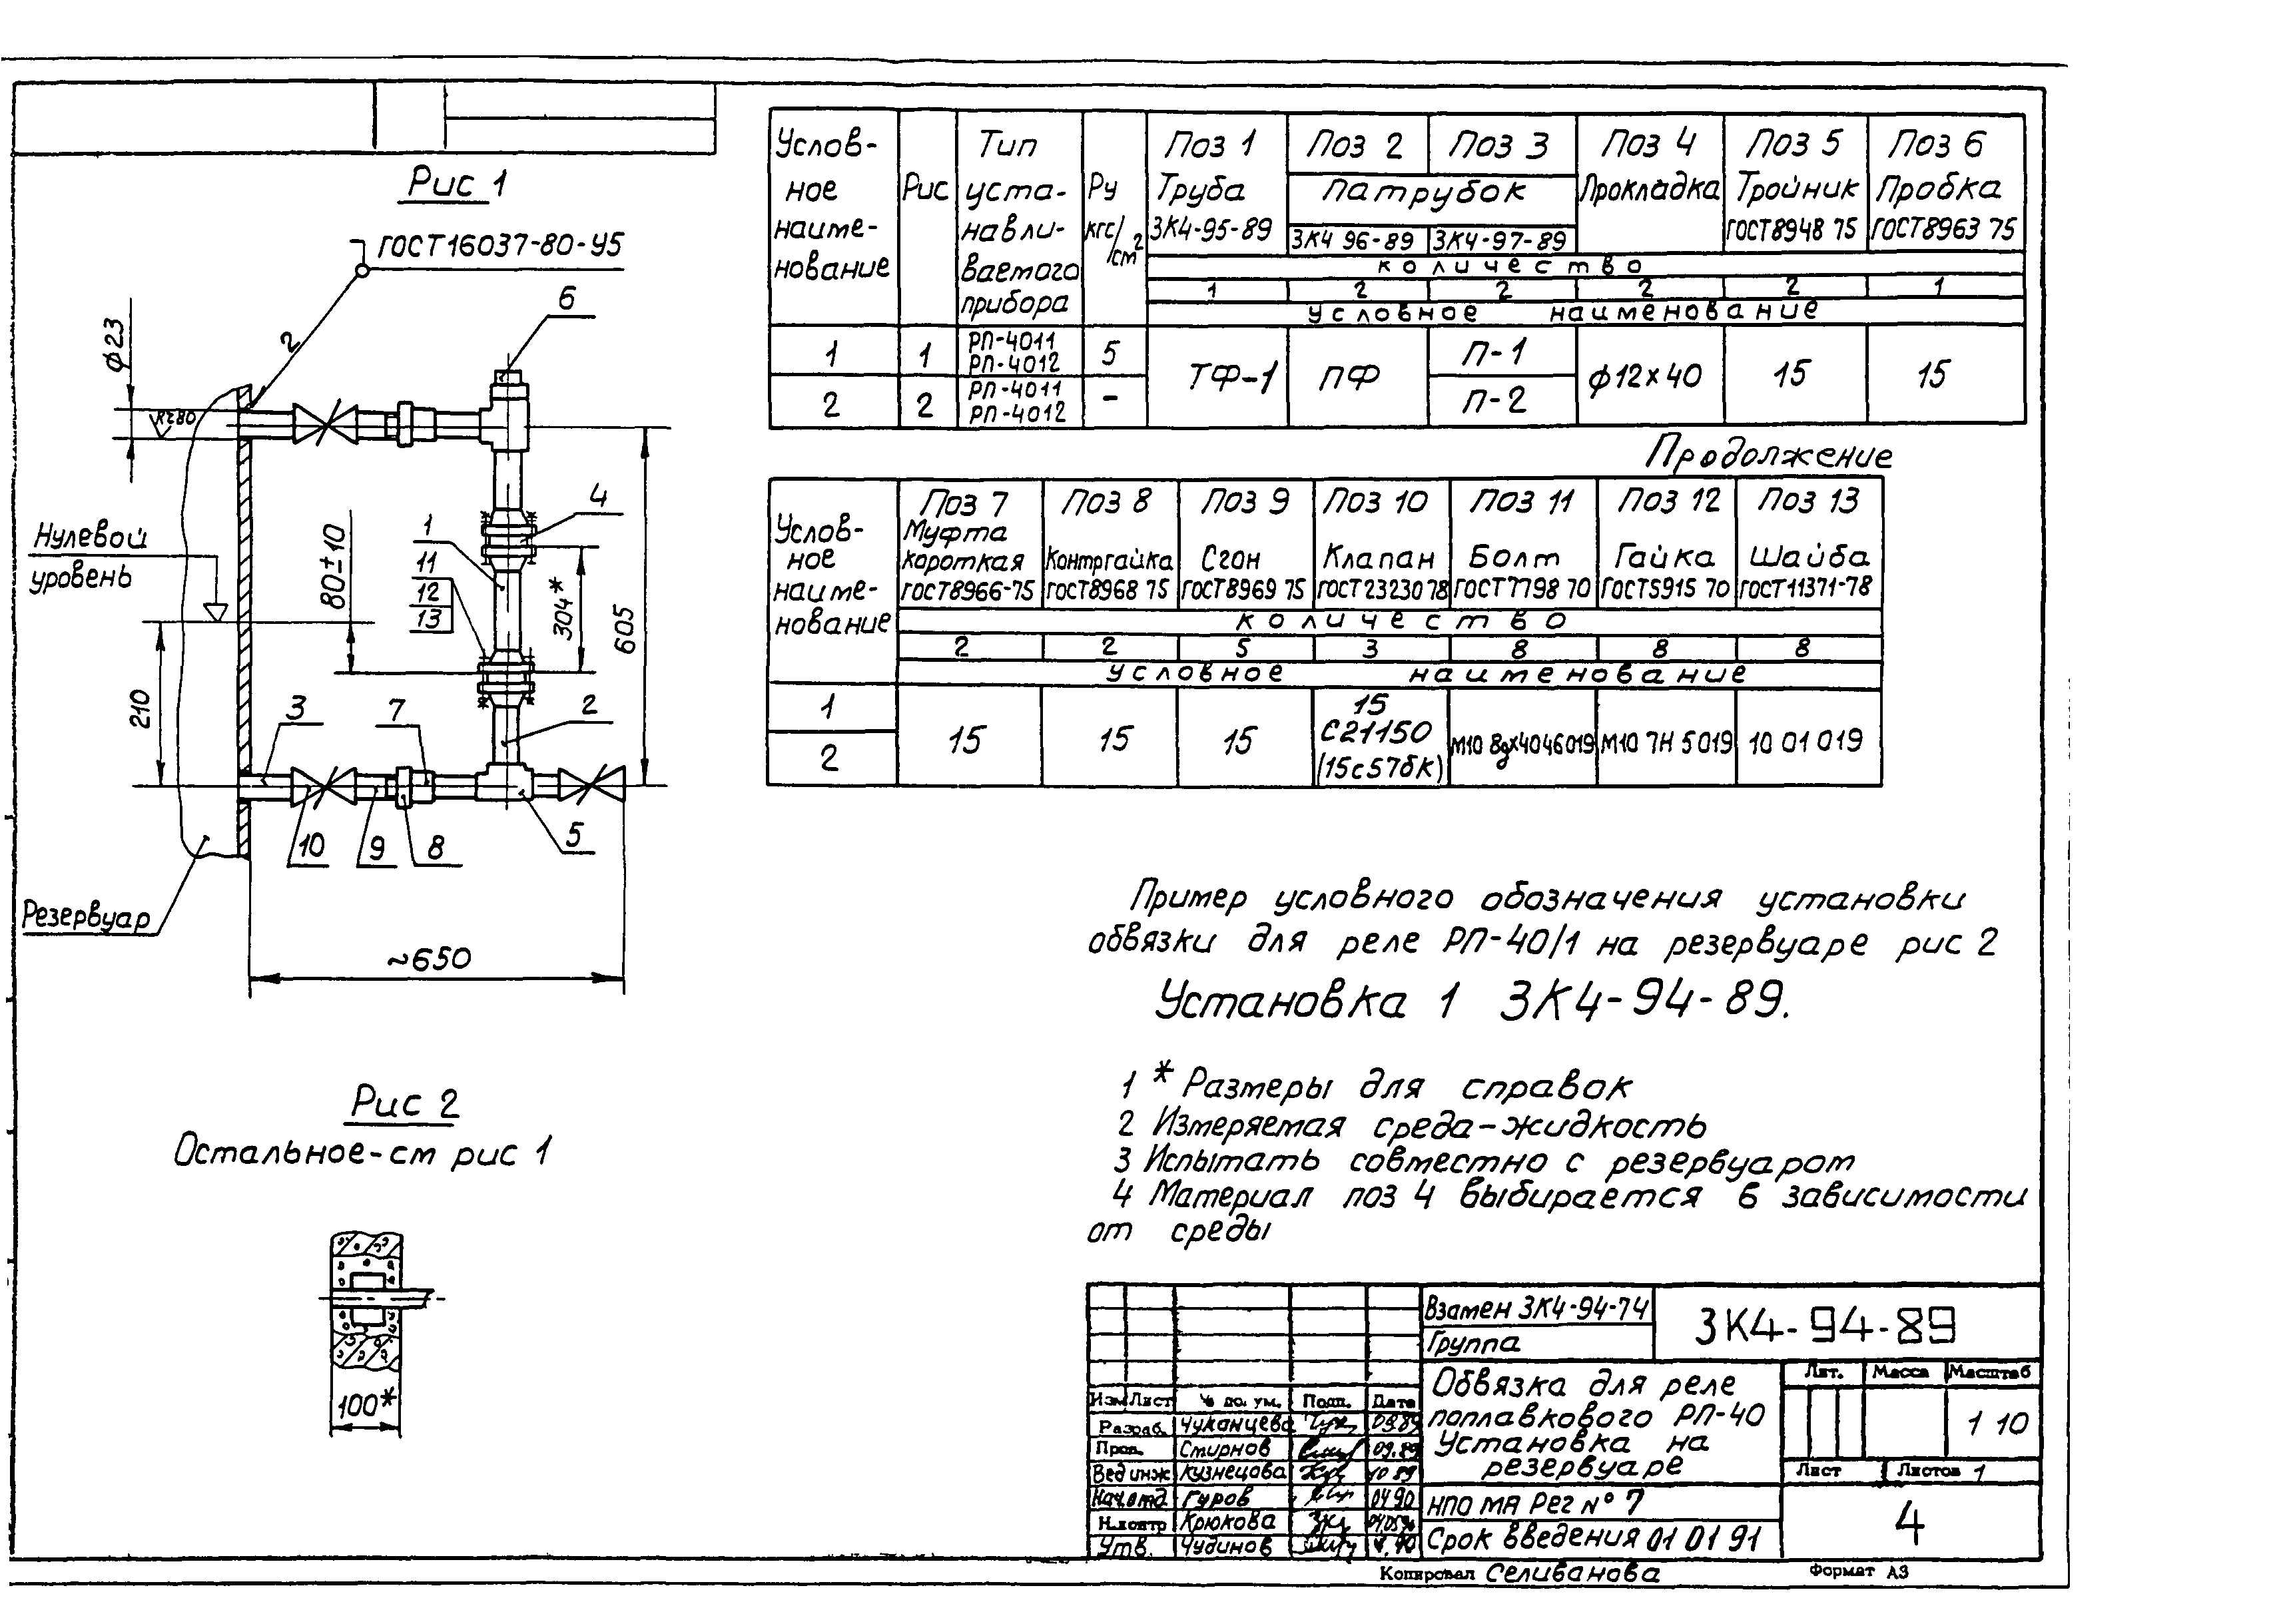 Рис 1
ГОСТ16037-80-У5
2
6
ϕ23
Rz80
4
1
11
12
13
Нулевой
уровень
80±10
304*
605
210
3
7
2
10
9
8
5
Резервуар
~650
Рис 2
Остальное-см рис 1
100*
Услов-
ное
наиме-
нование
Рис
Тип
уста-
навли-
ваемого
прибора
Ру
кгс/см²
Поз 1
Труба
ЗК4-95-89
Поз 2
Поз 3
Патрубок
ЗК4 96-89
ЗК4-97-89
Поз 4
Прокладка
Поз 5
Тройник
ГОСТ8948 75
Поз 6
Пробка
ГОСТ8963 75
количество
1 2 2 2 2 1
условное наименование
1 1 РП-4011 РП-4012 5
2 2 РП-4011 РП-4012 -
ТФ-1
ПФ
П-1
П-2
ϕ12×40
15
15
Продолжение
Услов-
ное
наиме-
нование
Поз 7
Муфта
короткая
ГОСТ8966-75
Поз 8
Контргайка
ГОСТ8968 75
Поз 9
Сгон
ГОСТ8969 75
Поз 10
Клапан
ГОСТ23230 78
Поз 11
Болт
ГОСТ7798 70
Поз 12
Гайка
ГОСТ5915 70
Поз 13
Шайба
ГОСТ11371-78
количество
2 2 5 3 8 8 8
условное наименование
1
2
15
15
15
15
С21150
(15с57бк)
М10 8gх40 46 019
М10 7Н 5 019
10 01 019
Пример условного обозначения установки
обвязки для реле РП-40/1 на резервуаре рис 2
Установка 1 ЗК4-94-89.
1 * Размеры для справок
2 Измеряемая среда-жидкость
3 Испытать совместно с резервуаром
4 Материал поз 4 выбирается в зависимости
от среды
Взамен ЗК4-94-74
Группа
ЗК4-94-89
Обвязка для реле
поплавкового РП-40
Установка на
резервуаре
Лит.
Масса
Масштаб
1 10
Лист
Листов 1
НПО МА Рег N° 7
Срок введения 01 01 91
4
Изм Лист № доκум. Подп. Дата
Разраб. Чуканцева 09.89
Пров. Смирнов 09.89
Вед инж Кузнецова 10 89
Нач.отд Гуров 04 90
Н.контр Крюкова
Утв. Чудинов
Копировал Селиванова
Формат А3